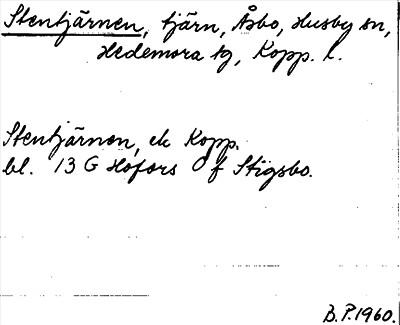 Stentjärnen, tjärn, Åsbo, Husby sn,
Hedemora tg, Kopp. l.
Stentjärnen, ek Kopp.
bl. 13 G Hofors O f Stigsbo.
B.P.1960.